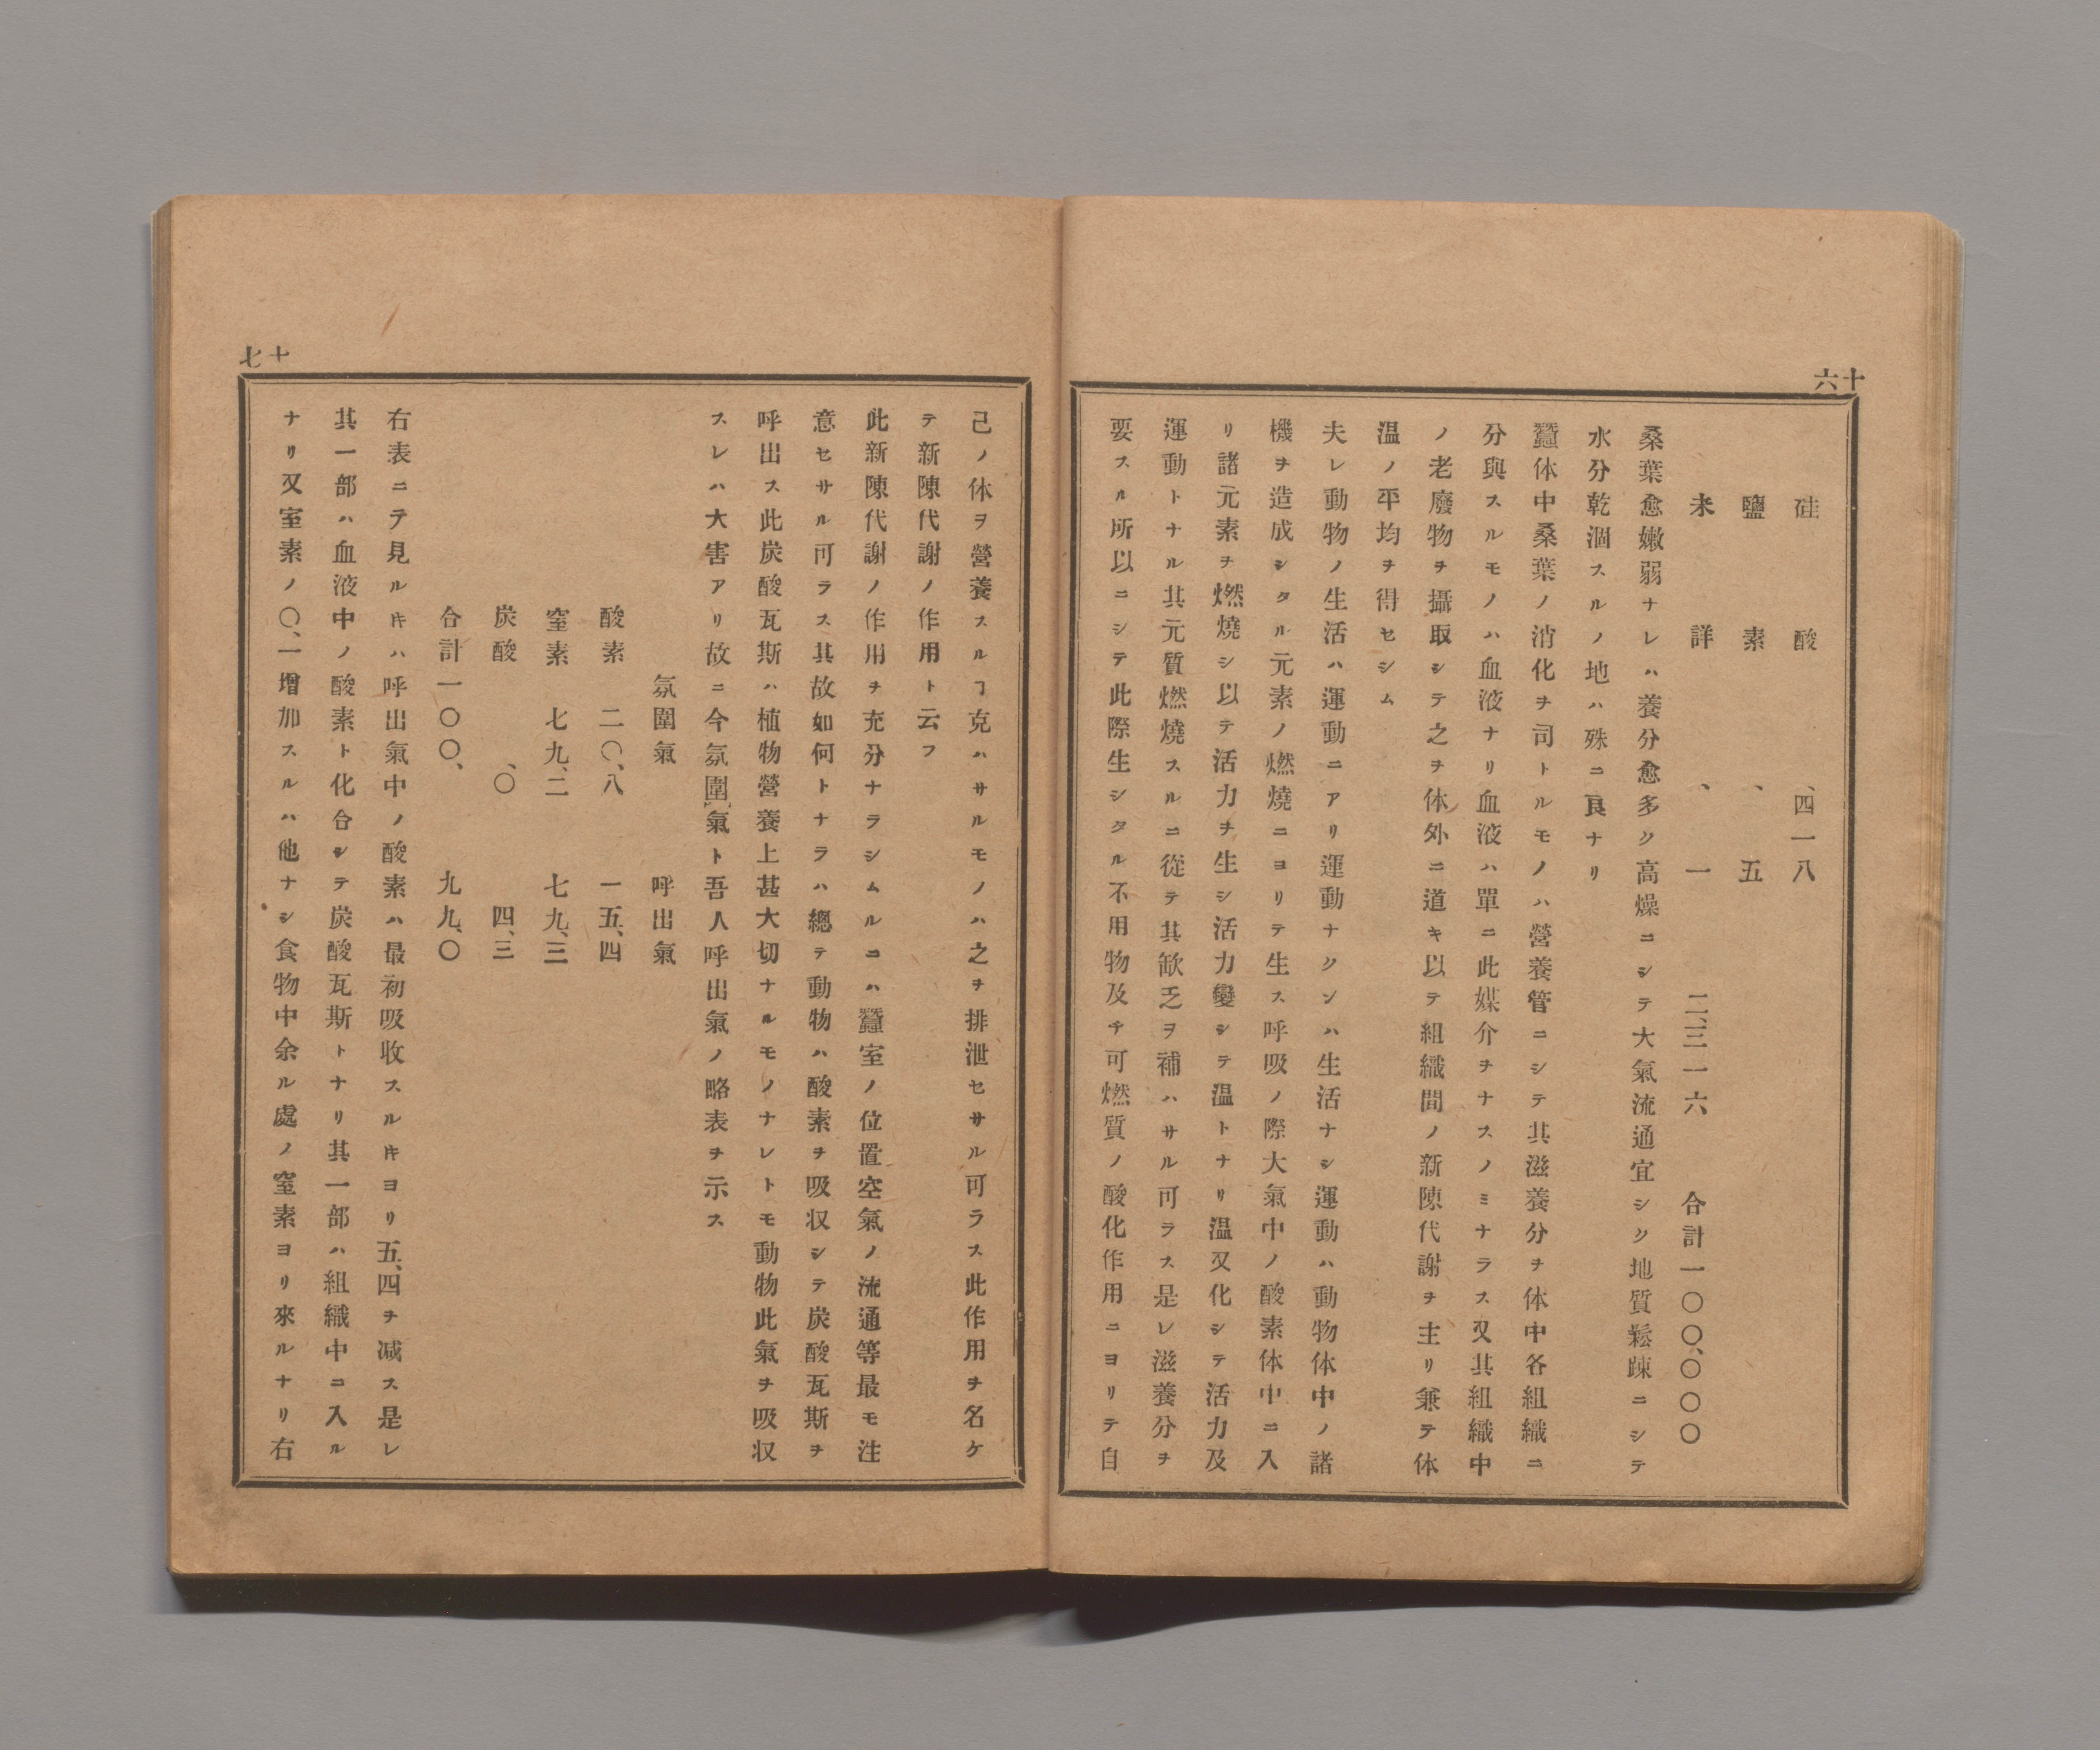 十六
硅酸 、四一八
鹽素 、五
未詳 、一 二、三一六 合計一〇〇、〇〇〇
桑葉愈嫩弱ナレハ養分愈多ク高燥ニシテ大氣流通宜シク地質鬆踈ニシテ
水分乾涸スルノ地ハ殊ニ良ナリ
蠶体中桑葉ノ消化ヲ司トルモノハ營養管ニシテ其滋養分ヲ体中各組織ニ
分與スルモノハ血液ナリ血液ハ單ニ此媒介ヲナスノミナラス又其組織中
ノ老廢物ヲ攝取シテ之ヲ体外ニ道キ以テ組織間ノ新陳代謝ヲ主リ兼テ体
温ノ平均ヲ得セシム
夫レ動物ノ生活ハ運動ニアリ運動ナクンハ生活ナシ運動ハ動物体中ノ諸
機ヲ造成シタル元素ノ燃燒ニヨリテ生ス呼吸ノ際大氣中ノ酸素体中ニ入
リ諸元素ヲ燃燒シ以テ活力ヲ生シ活力變シテ温トナリ温又化シテ活力及
運動トナル其元質燃燒スルニ從テ其歉乏ヲ補ハサル可ラス是レ滋養分ヲ
要スル所以ニシテ此際生シタル不用物及ヲ可燃質ノ酸化作用ニヨリテ自
十七
己ノ休ヲ營養スルヿ克ハサルモノハ之ヲ排泄セサル可ラス此作用ヲ名ケ
テ新陳代謝ノ作用ト云フ
此新陳代謝ノ作用ヲ充分ナラシムルニハ蠶室ノ位置空氣ノ流通等最モ注
意セサル可ラス其故如何トナラハ總テ動物ハ酸素ヲ吸収シテ炭酸瓦斯ヲ
呼出ス此炭酸瓦斯ハ植物營養上甚大切ナルモノナレトモ動物此氣ヲ吸収
スレハ大害アリ故ニ今氛圍氣ト吾人呼出氣ノ略表ヲ示ス
氛圍氣 呼出氣
酸素 二〇、八 一五、四
窒素 七九、二 七九、三
炭酸 、〇 四、三
合計一〇〇、 九九、〇
右表ニテ見ルキハ呼出氣中ノ酸素ハ最初吸收スルキヨリ五、四ヲ減ス是レ
其一部ハ血液中ノ酸素ト化合シテ炭酸瓦斯トナリ其一部ハ組織中ニ入ル
ナリ又室素ノ〇、一增加スルハ他ナシ食物中余ル處ノ窒素ヨリ來ルナリ右